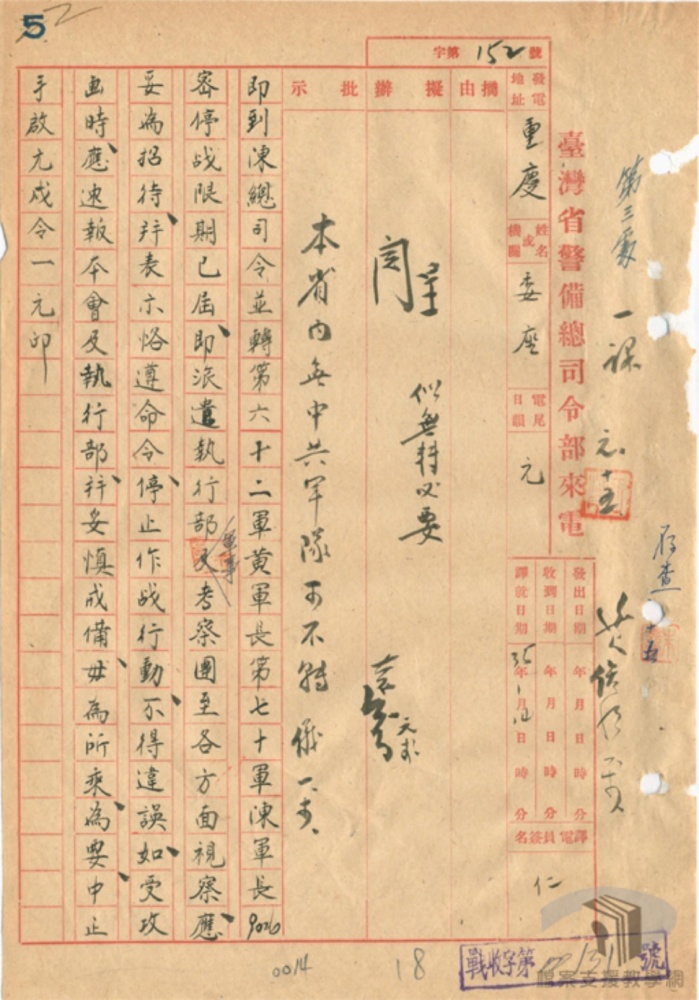 52
字第152號
臺灣省警備總司令部來電
第三處一課
元、十五
存查
十五
發電地址
重慶
姓名或機關
委座
電尾日韻
元
發出日期 年 月 日 時 分
收到日期 年 月 日 時 分
譯就日期 35年1月14日 時 分
譯電員簽名
仁
摘由
擬辦
批示
閱呈
似無轉必要
本省內無中共軍隊可不轉
即到陳總司令並轉第六十二軍黃軍長第七十軍陳軍長9026
密停战限期已屆即派遣執行部及軍事考察團至各方面視察應
妥為招待并表示恪遵命令停止作战行動不得違誤如受攻
擊時應速報本會及執行部并妥慎戒備毋為所乘為要中正
手啟元戌令一元印
0014
18
戰收字第 131 號
檔案支援教學網